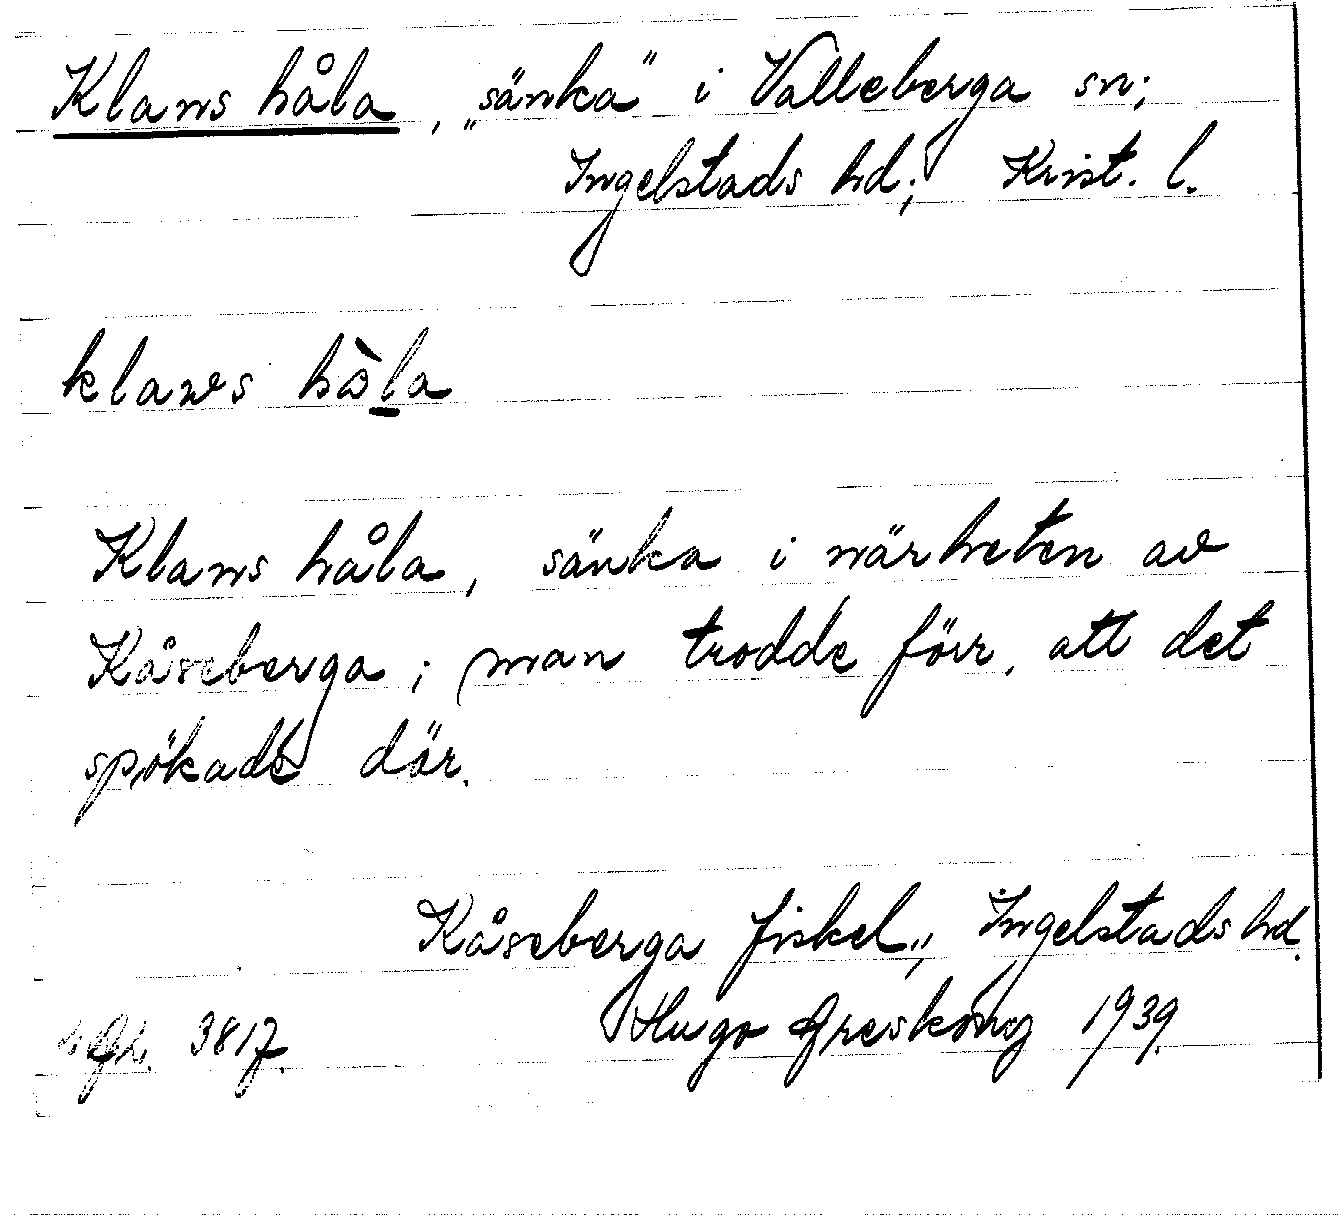 Klaws håla, „sänka" i Valleberga sn;
Ingelstads hd; Krist. l.
klaws hàla
Klaws håla, sänka i närheten av
Kåseberga; man trodde förr, att det
spökade där.
Kåseberga fiskel., Ingelstads hd.
3817. Hugo Areskoug 1939.